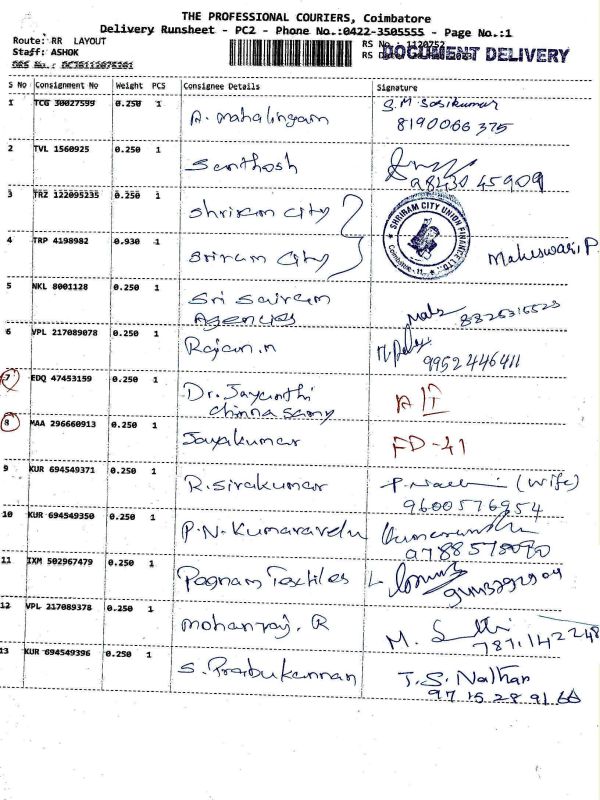 THE PROFESSIONAL COURIERS, Coimbatore
Delivery Runsheet - PC2 - Phone No.:0422-3505555 - Page No.:1
Route: RR LAYOUT
RS No.: 1120752
Staff: ASHOK
RS
DOCUMENT DELIVERY
DRS No.:
S No Consignment No Weight PCS Consignee Details Signature
1 TCG 30027599 0.250 1 A. Mahalingam S.M. Sasikumar
8190066375
2 TVL 1560925 0.250 1 Santhosh
9843045909
3 TRZ 122095235 0.250 1 Shriram City
SHRIRAM CITY UNION FINANCE LTD.
Coimbatore - 11.
4 TRP 4198982 0.930 1 Sriram City Maheswari P.
5 NKL 8001128 0.250 1 Sri Sairam
Agencies
6 VPL 217089078 0.250 1 Rajan.n
9952446411
7 EDQ 47453159 0.250 1 Dr. Jayanthi
chinnasamy
8 MAA 296660913 0.250 1 Jayakumar FD-41
9 KUR 694549371 0.250 1 R. Sivakumar (Wife)
9600576954
10 KUR 694549350 0.250 1 P.N. Kumaravelu
11 IXM 502967479 0.250 1 Textiles
12 VPL 217089378 0.250 1 Mohanraj. R M.
13 KUR 694549396 0.250 1 S. Prabukannan T.S. Nathan
9715289166